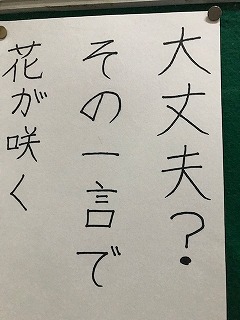 大丈夫？
その一言で
花が咲く